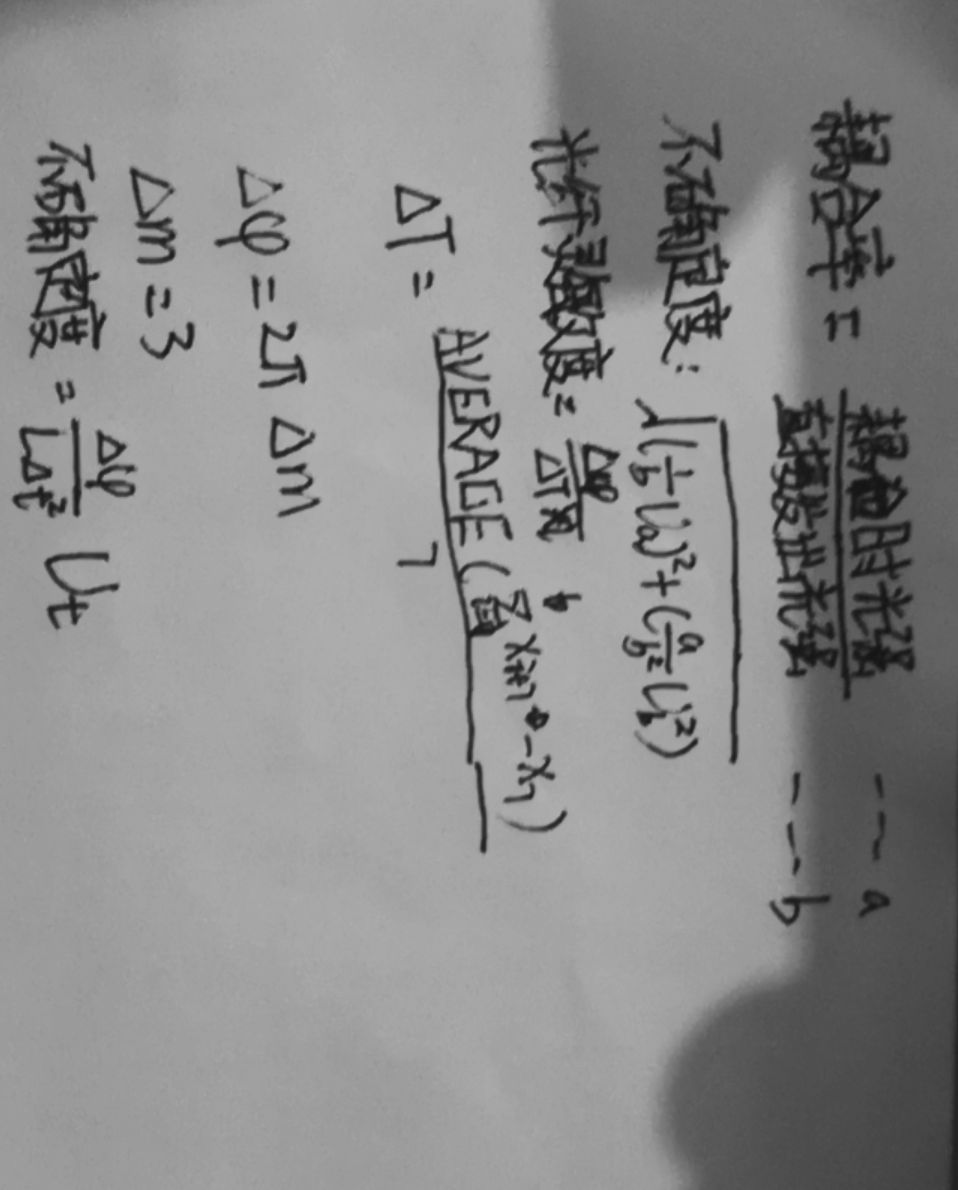 耦合率 = 耦合时光强 / 直接出光强 --- a / --- b
不确定度: √((1/b Ua)² + (a/b² Ub)²)
光纤灵敏度 = Δφ / ΔT
ΔT = AVERAGE( Σ xi+7 - xi ) / 7
Δφ = 2π Δm
Δm = 3
不确定度 = Δφ / LΔt² Ut